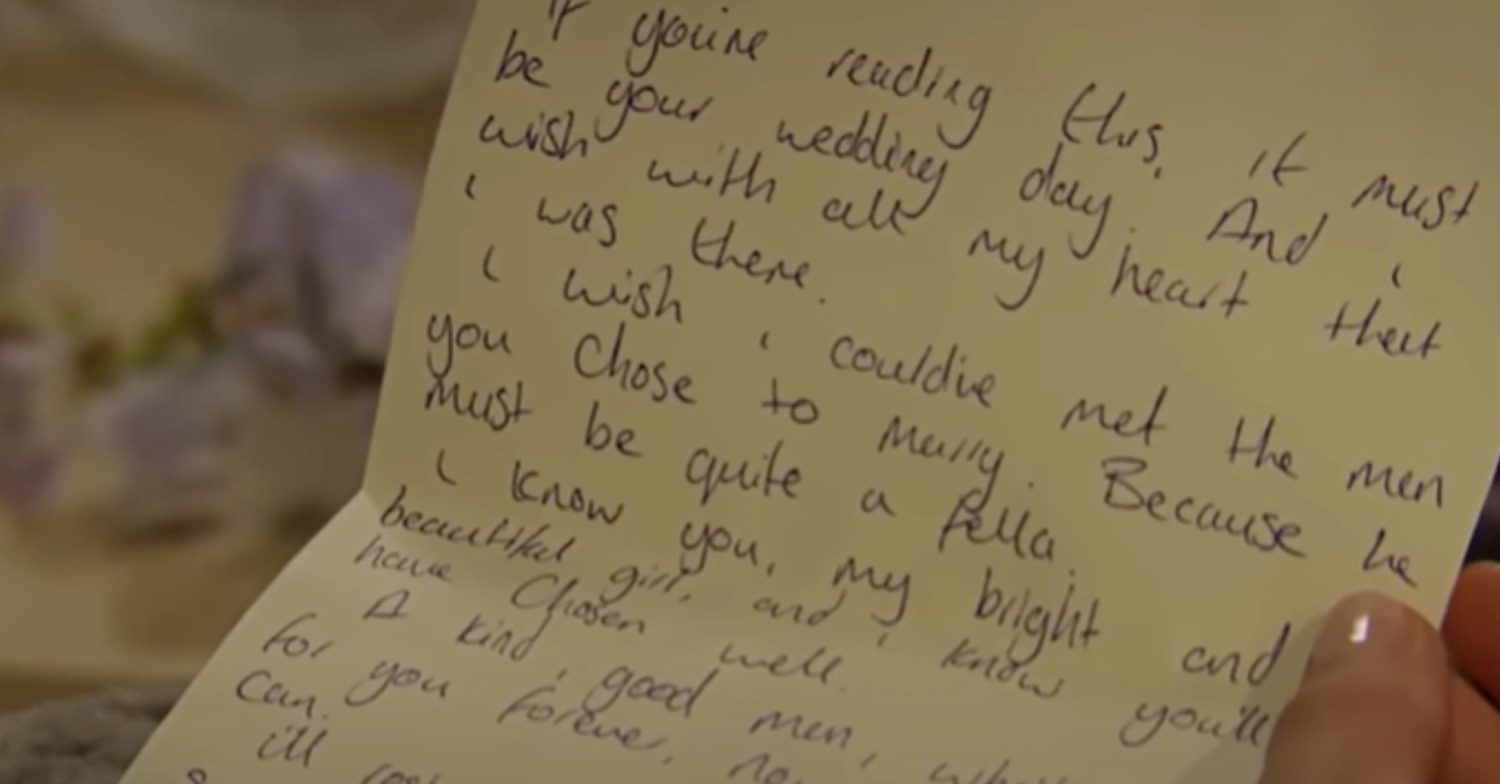 If you're reading this, it must
be your wedding day. And i
wish with all my heart that
i was there.
i wish i could've met the man
you chose to marry. Because he
must be quite a fella.
i know you, my bright and
beautiful girl, and i know you'll
have chosen well.
A kind, good man,
for you forever, no
can.
ill